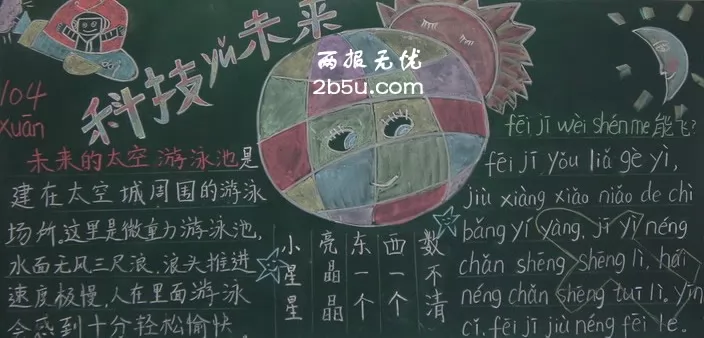 科技yǔ未来
两报无优
2b5u.com
104
xuān
未来的太空游泳池是
建在太空城周围的游泳
场所。这里是微重力游泳池,
水面无风三尺浪,浪头推进
速度极慢,人在里面游泳
会感到十分轻松愉快。
小星星
亮晶晶
东一个
西一个
数不清
fēi jī wèi shén me 能飞?
fēi jī yǒu liǎ gè yì,
jiù xiàng xiǎo niǎo de chì
bǎng yí yàng, jī yì néng
chǎn shēng shēng lì, hái
néng chǎn shēng tuī lì. yīn
cǐ, fēi jī jiù néng fēi le.